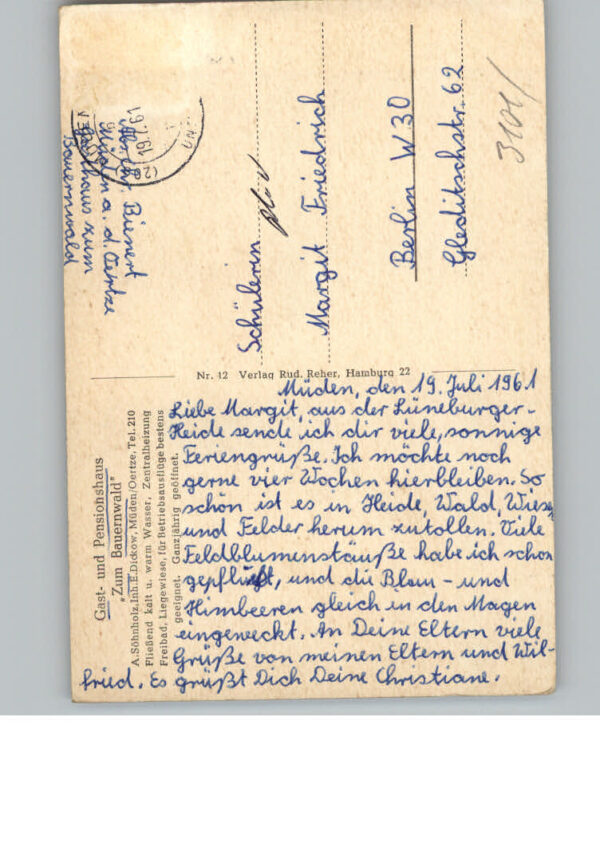 Müden, den 19. Juli 1961
Liebe Margit, aus der Lüneburger-
Heide sende ich dir viele, sonnige
Feriengrüße. Ich möchte noch
gerne vier Wochen hierbleiben. So
schön ist es in Heide, Wald, Wiesen
und Felder herum zutollen. Viele
Feldblumenstäuße habe ich schon
gepflückt, und die Blau- und
Himbeeren gleich in den Magen
eingeweckt. An Deine Eltern viele
Grüße von meinen Eltern und Wil-
fried. Es grüßt Dich Deine Christiane.
Nr. 12 Verlag Rud. Reher, Hamburg 22
Gast- und Pensionshaus
"Zum Bauernwald"
A. Söhnholz, Inh. E. Dickow, Müden/Oertze, Tel. 210
Fließend kalt u. warm Wasser, Zentralheizung
Freibad, Liegewiese, für Betriebsausflüge bestens
geeignet. Ganzjährig geöffnet.
Bienert
Müden a. d. Oertze
Gasthaus zum
Bauernwald
Schülerin
Margit Friedrich
Berlin W 30
Gleditschstr. 62